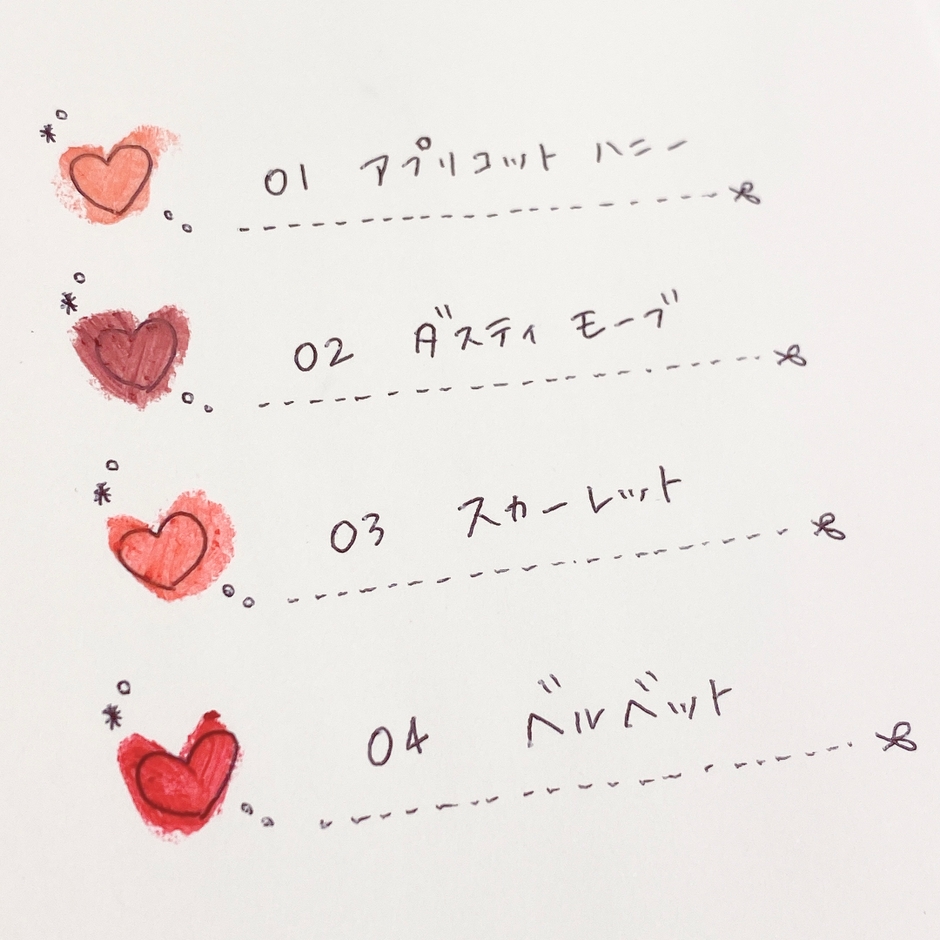 01 アプリコット ハニー
02 ダスティ モーブ
03 スカーレット
04 ベルベット